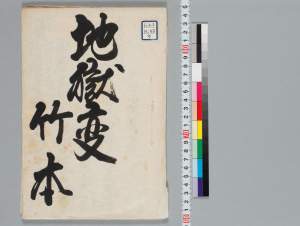 地獄変
竹本